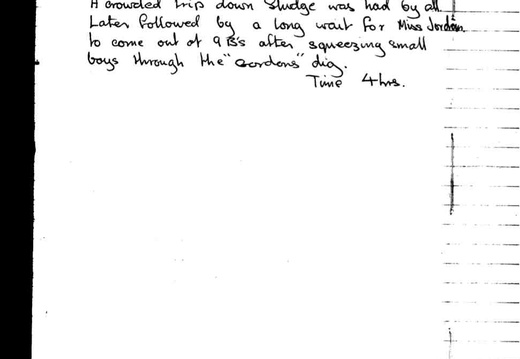 A crowded trip down Sludge was had by all.
Later followed by a long wait for Miss Jordan
to come out of 9 B's after squeezing small
boys through the "Gordons" dig.
Time 4hrs.